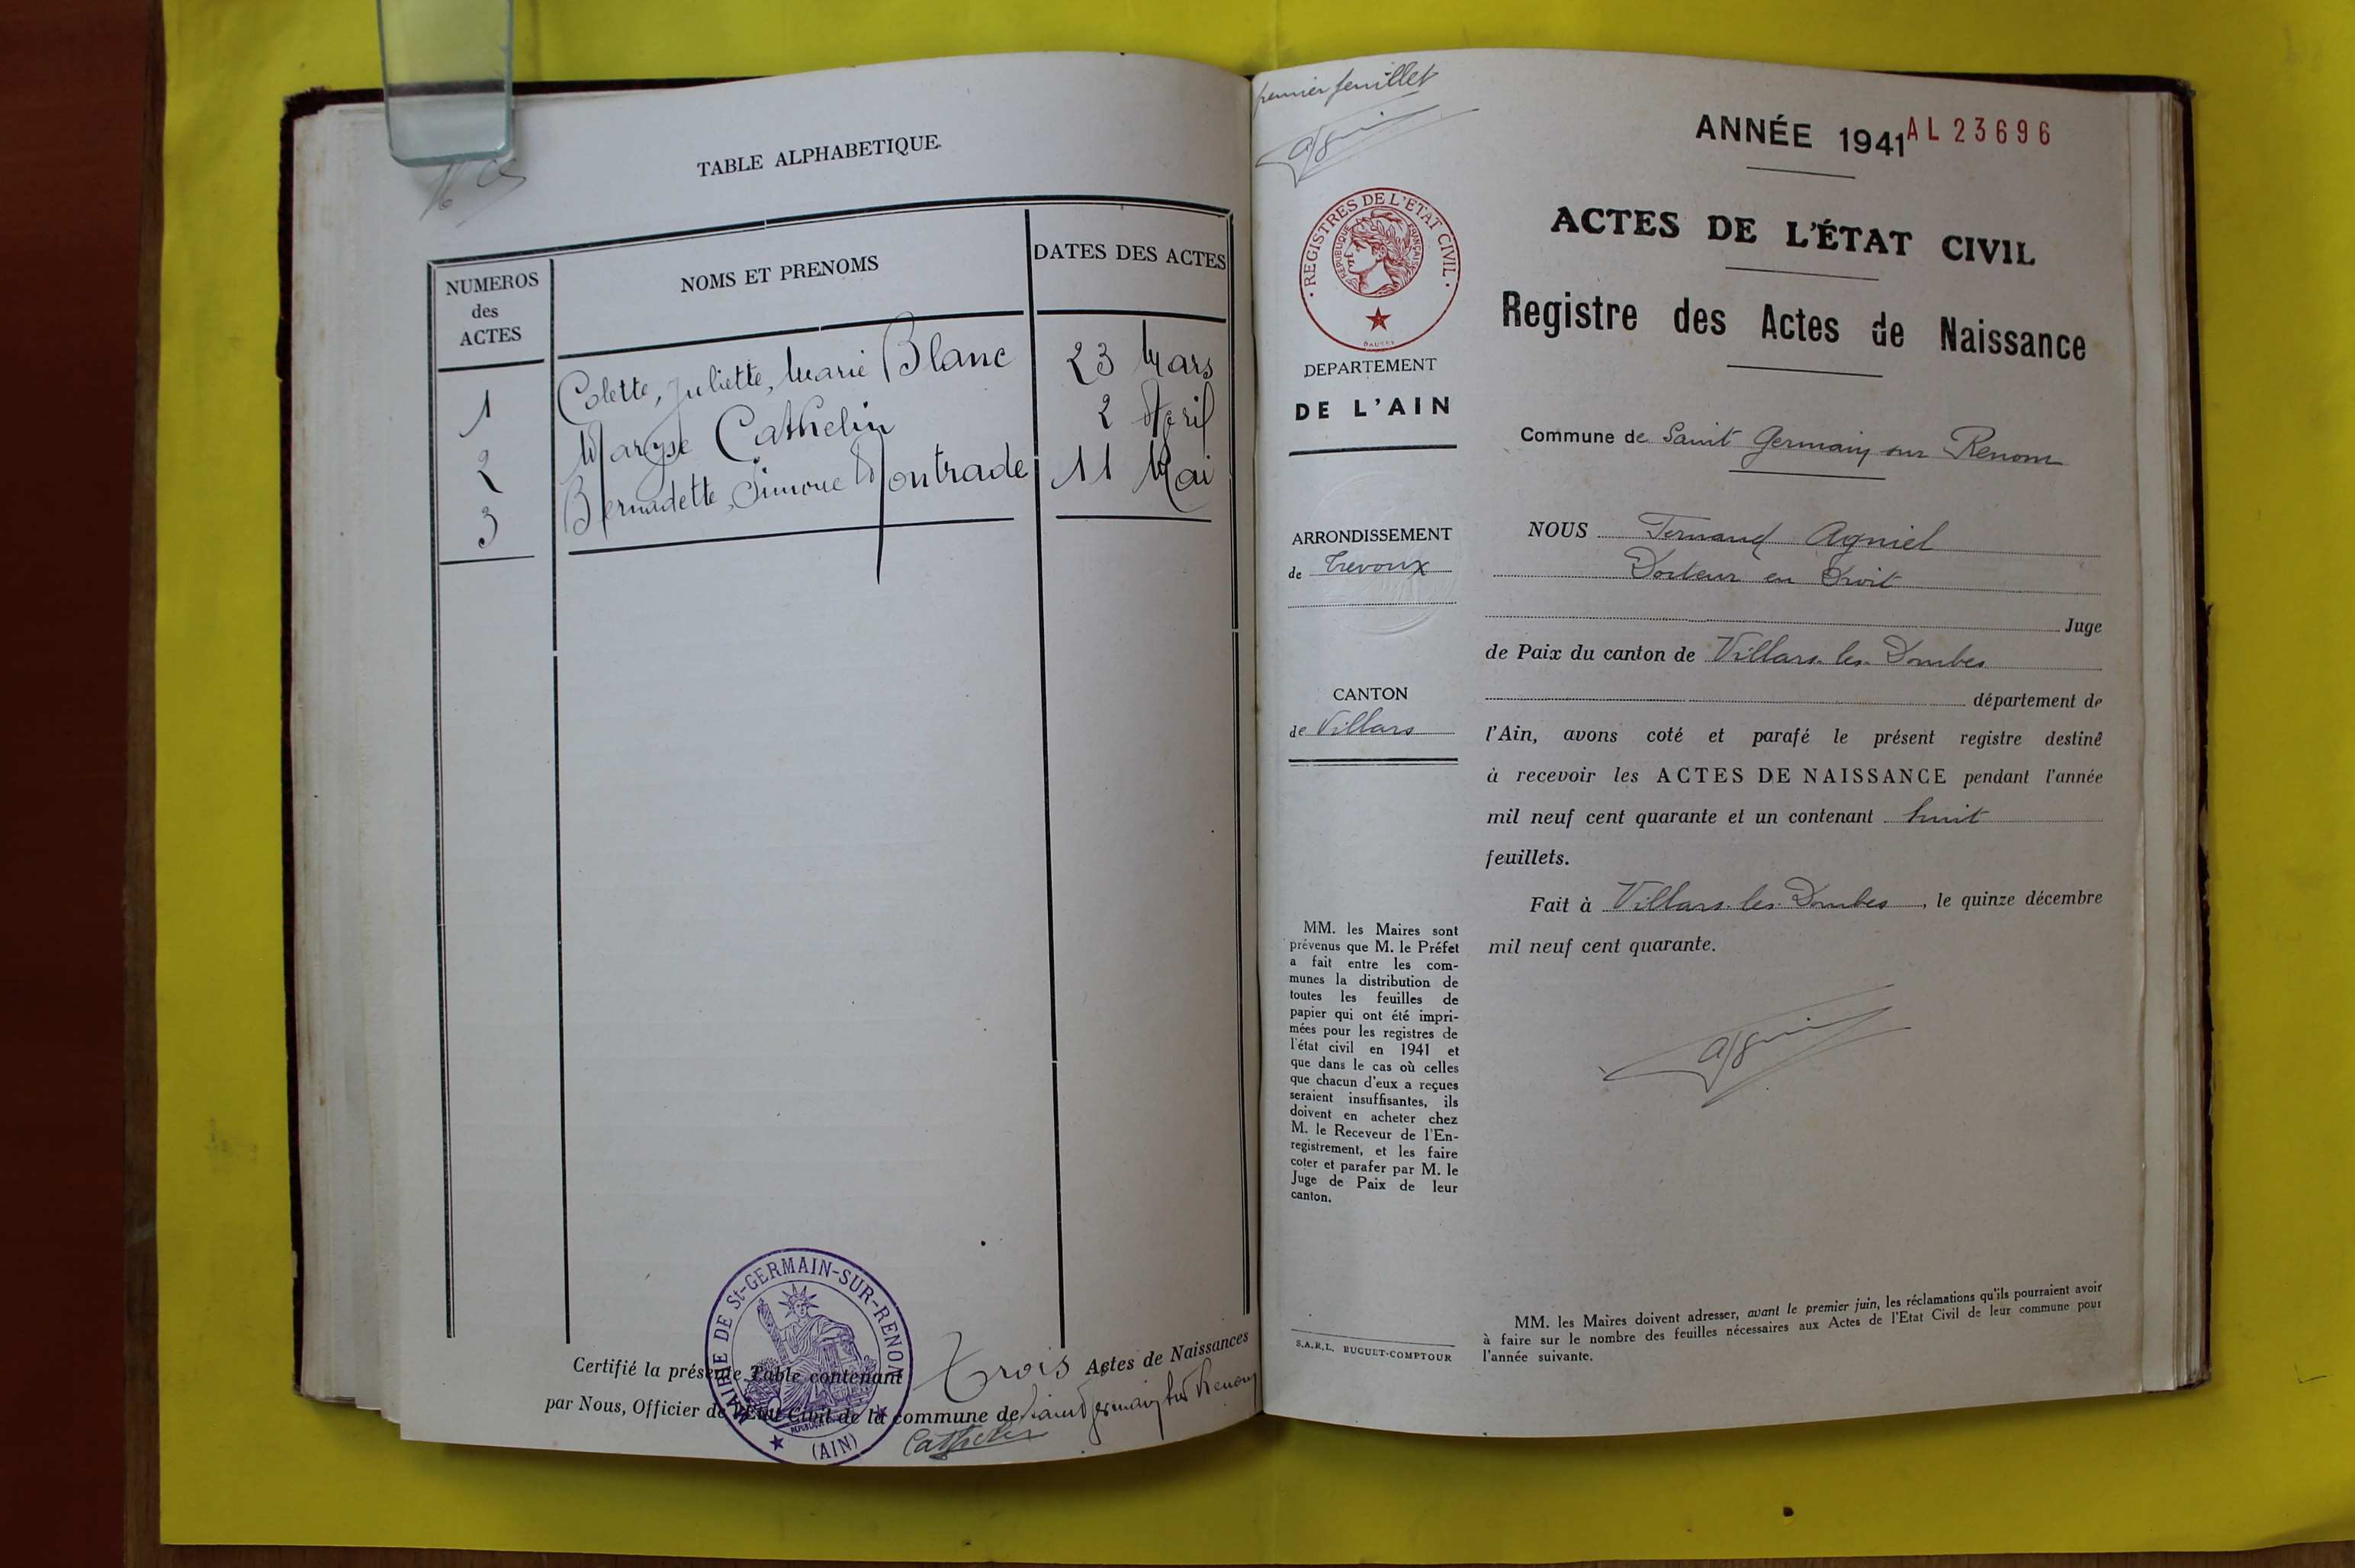 TABLE ALPHABETIQUE.
NUMEROS
des
ACTES
NOMS ET PRENOMS
DATES DES ACTES
1 Colette, Juliette, Marie Blanc 23 Mars
2 Maryse Cathelin 2 Avril
3 Bernadette, Simone Montrade 11 Mai
MAIRIE DE St-GERMAIN-SUR-RENON
(AIN)
Certifié la présente Table contenant Trois Actes de Naissances
par Nous, Officier de l'Etat Civil de la commune de Saint Germain sur Renom
Cathelin
premier feuillet
ANNÉE 1941 AL 23696
REGISTRES DE L'ETAT CIVIL
REPUBLIQUE FRANÇAISE
ACTES DE L'ÉTAT CIVIL
Registre des Actes de Naissance
DEPARTEMENT
DE L'AIN
Commune de Saint Germain sur Renom
ARRONDISSEMENT
de Trevoux
CANTON
de Villars
NOUS Fernand Agniel
Docteur en Droit
Juge
de Paix du canton de Villars-les-Dombes
département de
l'Ain, avons coté et parafé le présent registre destiné
à recevoir les ACTES DE NAISSANCE pendant l'année
mil neuf cent quarante et un contenant huit
feuillets.
Fait à Villars-les-Dombes, le quinze décembre
mil neuf cent quarante.
MM. les Maires sont
prévenus que M. le Préfet
a fait entre les com-
munes la distribution de
toutes les feuilles de
papier qui ont été impri-
mées pour les registres de
l'état civil en 1941 et
que dans le cas où celles
que chacun d'eux a reçues
seraient insuffisantes, ils
doivent en acheter chez
M. le Receveur de l'En-
registrement, et les faire
coter et parafer par M. le
Juge de Paix de leur
canton.
S.A.R.L. BUGUET-COMPTOUR
MM. les Maires doivent adresser, avant le premier juin, les réclamations qu'ils pourraient avoir
à faire sur le nombre des feuilles nécessaires aux Actes de l'Etat Civil de leur commune pour
l'année suivante.